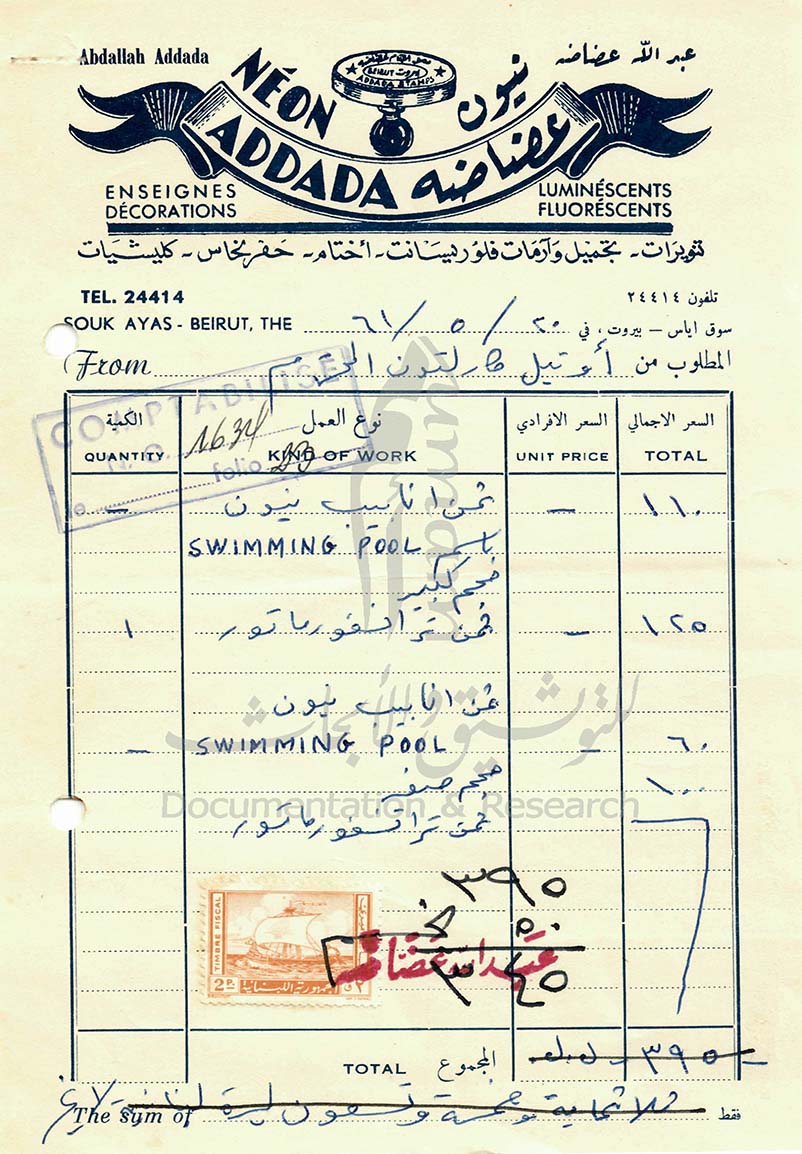 Abdallah Addada
عبد الله عضاضه
NÉON
نيون
ADDADA STAMPS
ADDADA
عضاضه
ENSEIGNES
DÉCORATIONS
LUMINÉSCENTS
FLUORÉSCENTS
تنويرات - تجميل وآرمات فلوريسانت - أختام - حفر نحاس - كليشيات
TEL. 24414
تلفون ٢٤٤١٤
SOUK AYAS - BEIRUT, THE
سوق اياس – بيروت ، في ٢٠ / ٥ / ٦١
From
المطلوب من أوتيل كارلتون المحترم
COMPTABILISÉ
N. O. 1634
folio 23
le
الكمية
نوع العمل
السعر الافرادي
السعر الاجمالي
QUANTITY
KIND OF WORK
UNIT PRICE
TOTAL
– ثمن انابيب نيون – ١١٠
باسم SWIMMING POOL
حجم كبير
١ ثمن ترانسفورماتور – ١٢٥
ثمن انابيب نيون
– SWIMMING POOL – ٦٠
حجم صغير ١٠٠
ثمن ترانسفورماتور
٣٩٥
خصم ٥٠
٣٤٥
عبدالله عضاضه
TIMBRE FISCAL
2 P.
الجمهورية اللبنانية
TOTAL
المجموع
٣٩٥ ل.ل.
The sum of
ثلاثماية وخمسة وتسعون ليرة لبنانية لاغير
فقط
للتوثيق والأبحاث
Documentation & Research
umam